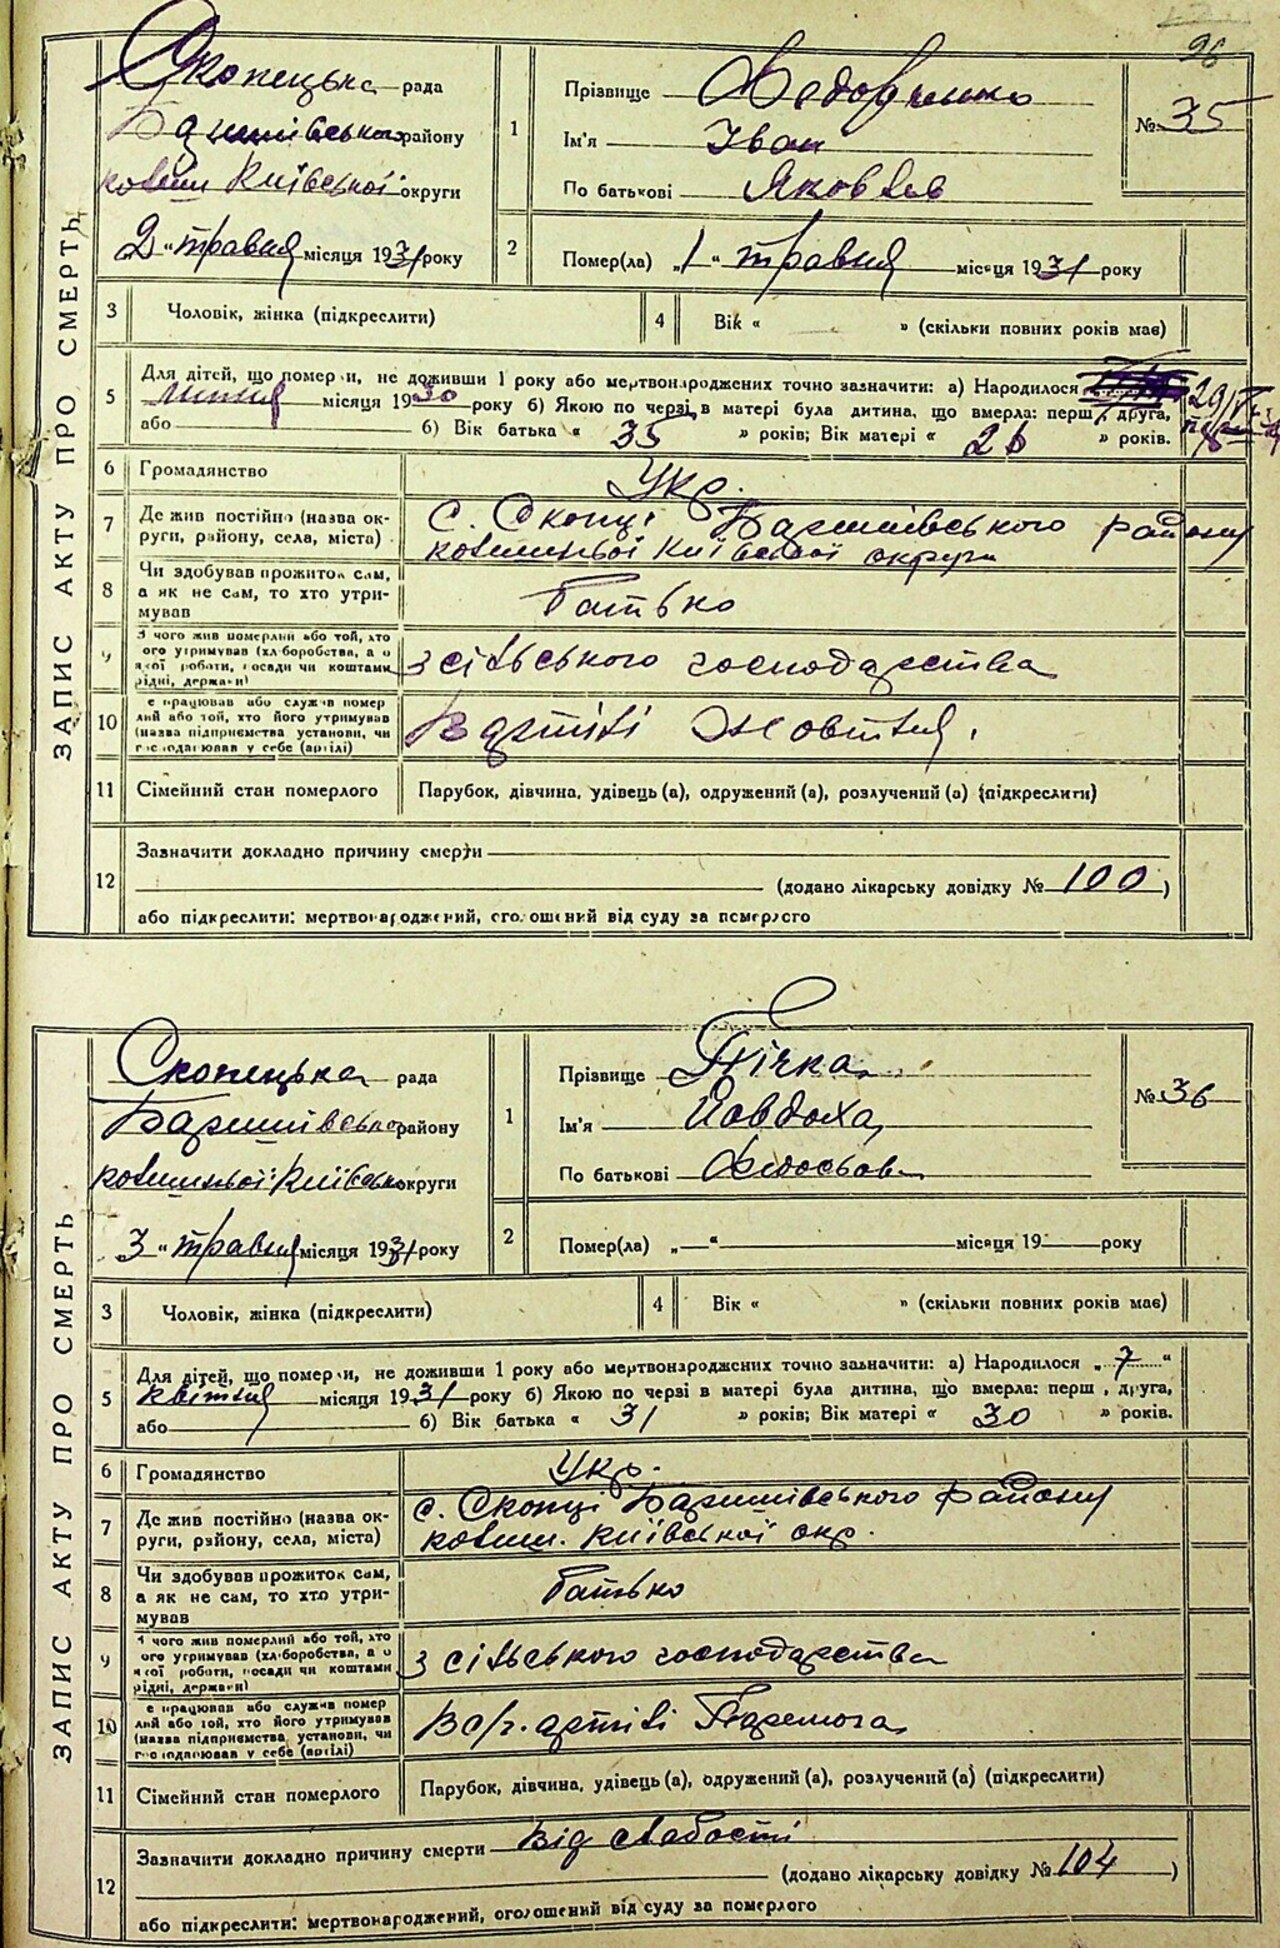 96
ЗАПИС АКТУ ПРО СМЕРТЬ
Скопецька рада
Баришівського району
колиш Київської округи
2 " травня місяця 1931 року
1
Прізвище Федорченко
Ім'я Іван
По батькові Яковлев
№ 35
2
Помер(ла) „1 " травня місяця 1931 року
3 Чоловік, жінка (підкреслити)
4 Вік « — » (скільки повних років має)
5 Для дітей, що померли, не доживши 1 року або мертвонароджених точно зазначити: а) Народилося 29/V
місяця 1930 року б) Якою по черзі в матері була дитина, що вмерла: перш , друга,
або б) Вік батька « 35 » років; Вік матері « » років.
6 Громадянство Укр.
7 Де жив постійно (назва округи, району, села, міста) с. Скопці Баришівського району
колишньої Київської округи
8 Чи здобував прожиток сам, а як не сам, то хто утримував Батько
9 З чого жив померлий або той, хто його утримував (хліборобства, а о якої роботи, посади чи коштами рідні, держави) З сільського господарства
10 Де працював або служив померлий або той, хто його утримував (назва підприємства установи, чи господарював у себе (артілі) В артілі Жовтня.
11 Сімейний стан померлого Парубок, дівчина, удівець (а), одружений (а), розлучений (а) (підкреслити)
12 Зазначити докладно причину смерти
(додано лікарську довідку № 100 )
або підкреслити: мертвонароджений, оголошений від суду за померлого
ЗАПИС АКТУ ПРО СМЕРТЬ
Скопецька рада
Баришівсько району
колишньої Київсько округи
3 " травня місяця 1931 року
1
Прізвище Гвічка
Ім'я Йовдоха
По батькові Федосьов
№ 36
2
Помер(ла) „—" місяця 19 року
3 Чоловік, жінка (підкреслити)
4 Вік « » (скільки повних років має)
5 Для дітей, що померли, не доживши 1 року або мертвонароджених точно зазначити: а) Народилося „ 7 "
квітня місяця 1931 року б) Якою по черзі в матері була дитина, що вмерла: перш , друга,
або б) Вік батька « 31 » років; Вік матері « 30 » років.
6 Громадянство Укр.
7 Де жив постійно (назва округи, району, села, міста) с. Скопці Баришівського району
колиш. Київської окр.
8 Чи здобував прожиток сам, а як не сам, то хто утримував Батько
9 З чого жив померлий або той, хто його утримував (хліборобства, а о якої роботи, посади чи коштами рідні, держави) З сільського господарства
10 Де працював або служив померлий або той, хто його утримував (назва підприємства установи, чи господарював у себе (артілі) В с/г. артілі Перемога
11 Сімейний стан померлого Парубок, дівчина, удівець (а), одружений (а), розлучений (а) (підкреслити)
12 Зазначити докладно причину смерти Від слабости
(додано лікарську довідку № 104 )
або підкреслити: мертвонароджений, оголошений від суду за померлого